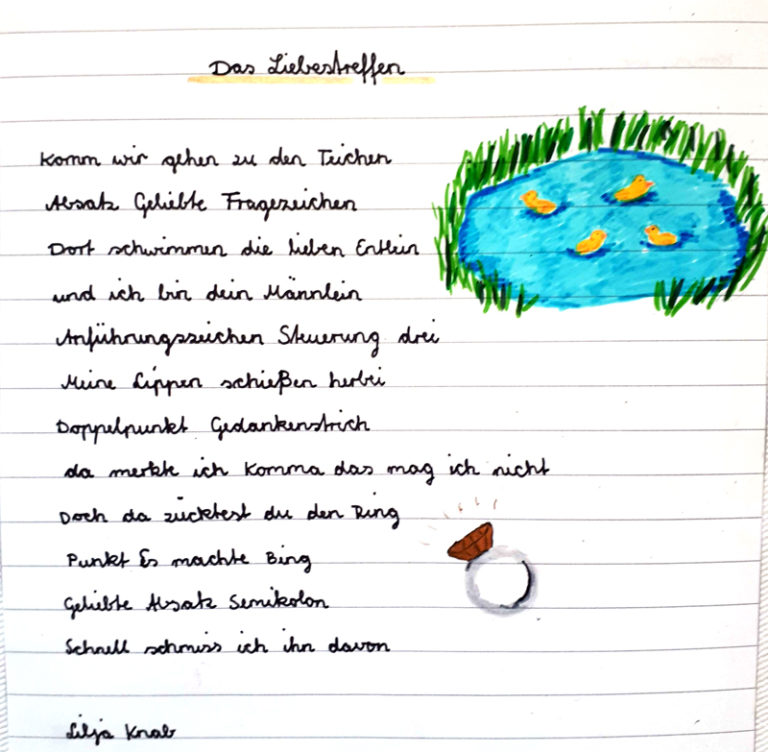 Das Liebestreffen
Komm wir gehen zu den Teichen
Absatz Geliebte Fragezeichen
Dort schwimmen die lieben Entlein
und ich bin dein Männlein
Anführungszeichen Steuerung drei
Meine Lippen schießen herbei
Doppelpunkt Gedankenstrich
da merkte ich Komma das mag ich nicht
Doch da zücktest du den Ring
Punkt Es machte Bing
Geliebte Absatz Semikolon
Schnell schmiss ich ihn davon
Lilja Knab